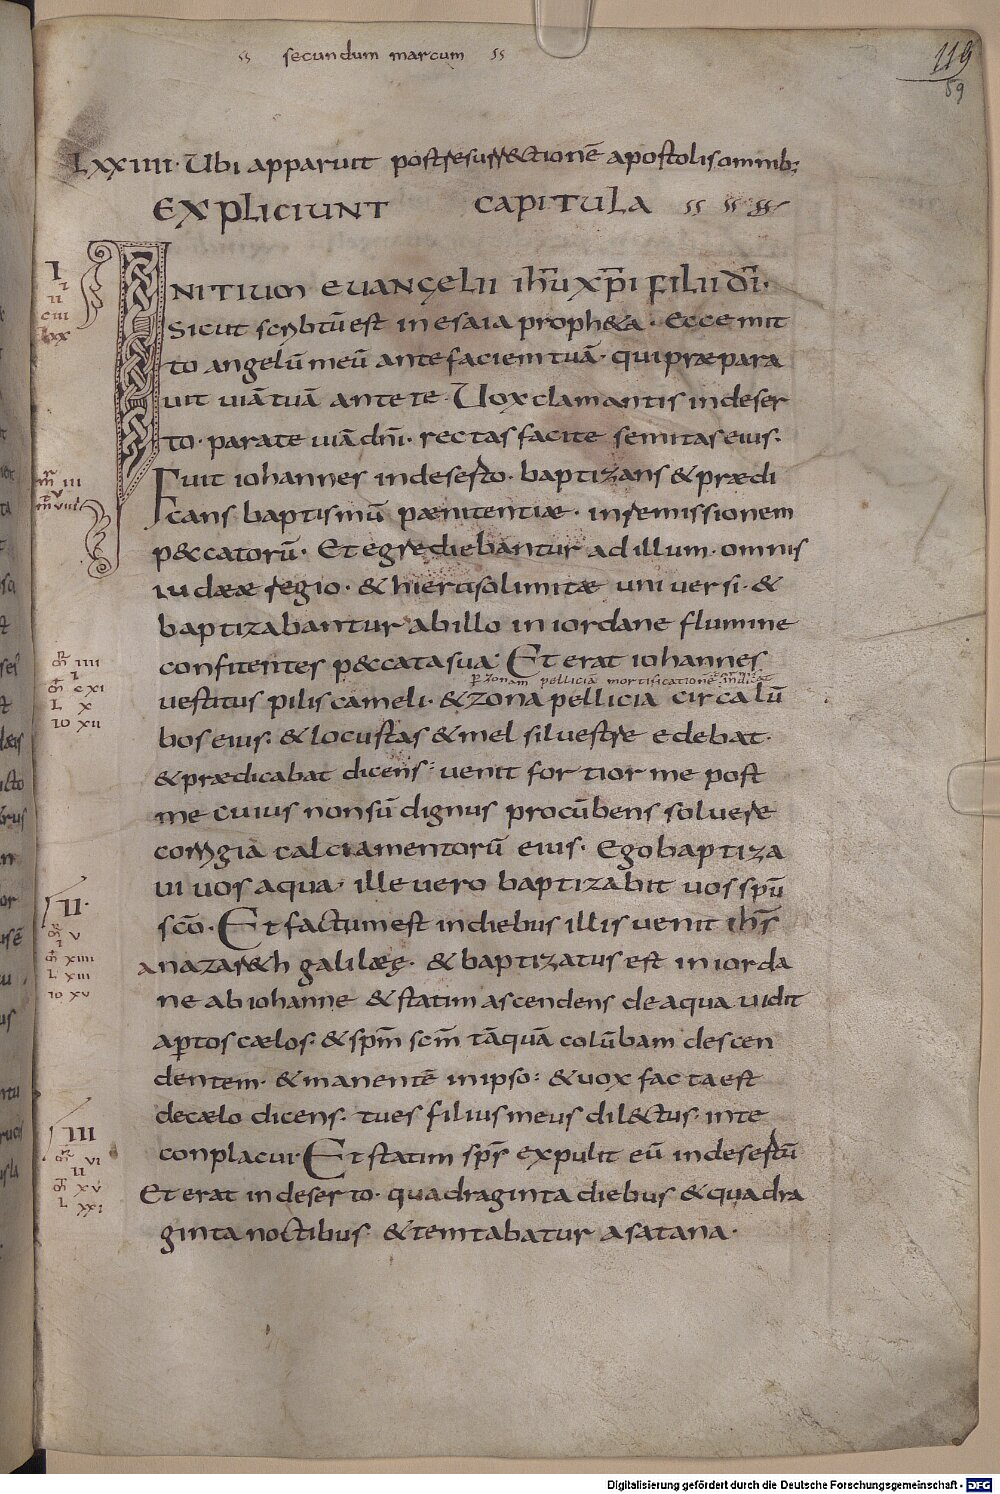 secundum marcum
119
89
LXXIIII. Ubi apparuit post resurrectionē apostolis omnib;
EXPLICIUNT CAPITULA
INITIUM EUANGELII ihū xp̄i FILII dī.
Sicut scribtū est in esaia propheta. Ecce mit
to angelū meū ante faciem tuā. qui præpara
uit uiā tuā ante te. Uox clamantis in deser
to. parate uiā dn̄i. rectas facite semitas eius.
Fuit iohannes in deserto. baptizans & prædi
cans baptismū pænitentiæ. in remissionem
p&catorū. Et egrediebantur ad illum. omnis
iudææ regio. & hierusolimitæ uniuersi. &
baptizabantur ab illo in iordane flumine
confitentes p&cata sua. Et erat iohannes
p zonam pelliciā mortificationē indicat
uestitus pilis cameli. & zona pellicia circa lū
bos eius. & locustas & mel siluestre edebat.
& prædicabat dicens: uenit fortior me post
me cuius non sū dignus procūbens soluere
corrigiā calciamentorū eius. Ego baptiza
ui uos aqua. ille uero baptizabit uos spū
scō. Et factum est in diebus illis uenit ihs̄
a nazar&h galilææ. & baptizatus est in iorda
ne ab iohanne & statim ascendens de aqua uidit
aptos cælos. & spm̄ scm̄ tāquā colūbam descen
dentem. & manentē in ipso: & uox facta est
de cælo dicens. tu es filius meus dil&tus. in te
conplacui. Et statim sps̄ expulit eū in desertū
Et erat in deserto. quadraginta diebus & quadra
ginta noctibus & temtabatur a satana.
I
I
II
CIII
LXX
m̄ III
m̄ VIII
m̄ IIII
I
m̄ CXI
L X
IO XII
II.
m̄ V
I
m̄ XIIII
L XIII
IO XV
III
m̄ VI
II
m̄ XV
L XXI
Digitalisierung gefördert durch die Deutsche Forschungsgemeinschaft - DFG